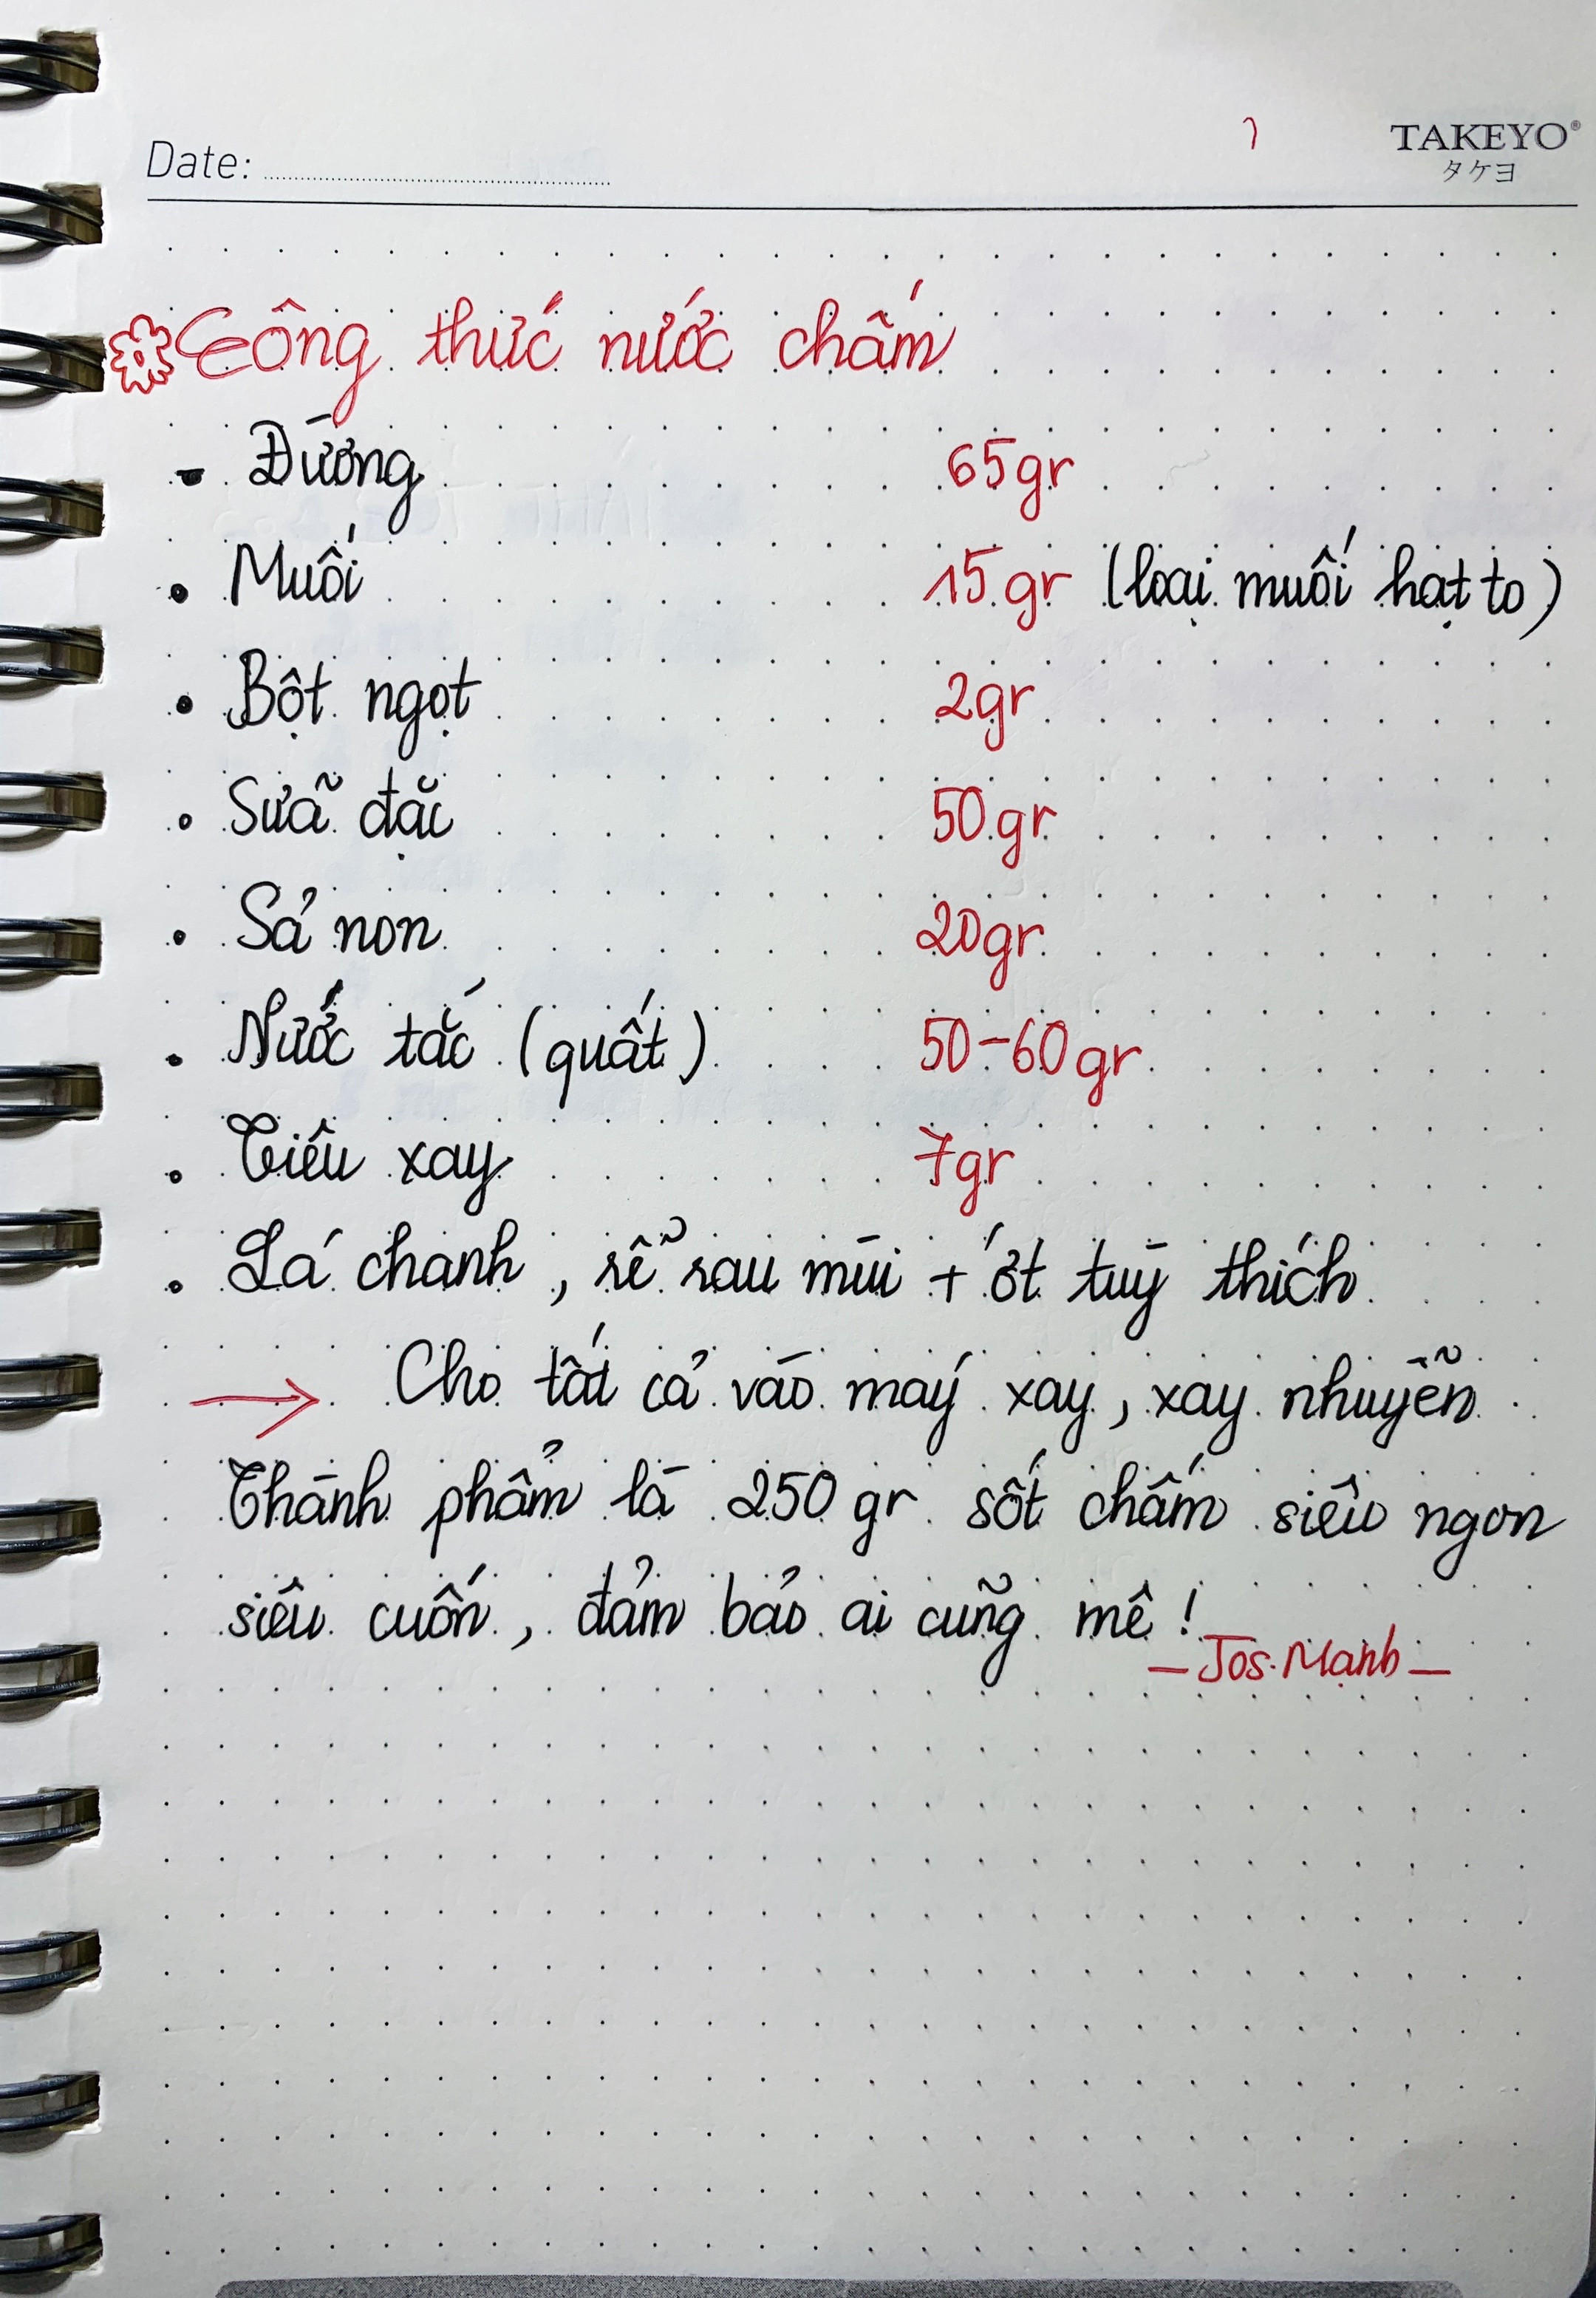 Date:
TAKEYO®
タケヨ
Công thức nước chấm
- Đường 65gr
• Muối 15gr (loại muối hạt to)
• Bột ngọt 2gr
• Sữa đặc 50gr
• Sả non 20gr
• Nước tắc (quất) 50-60gr
• Tiêu xay 7gr
• Lá chanh, rễ rau mùi + ớt tuỳ thích
→ Cho tất cả vào máy xay, xay nhuyễn
Thành phẩm là 250 gr sốt chấm siêu ngon
siêu cuốn, đảm bảo ai cũng mê!
- Jos. Mạnh -